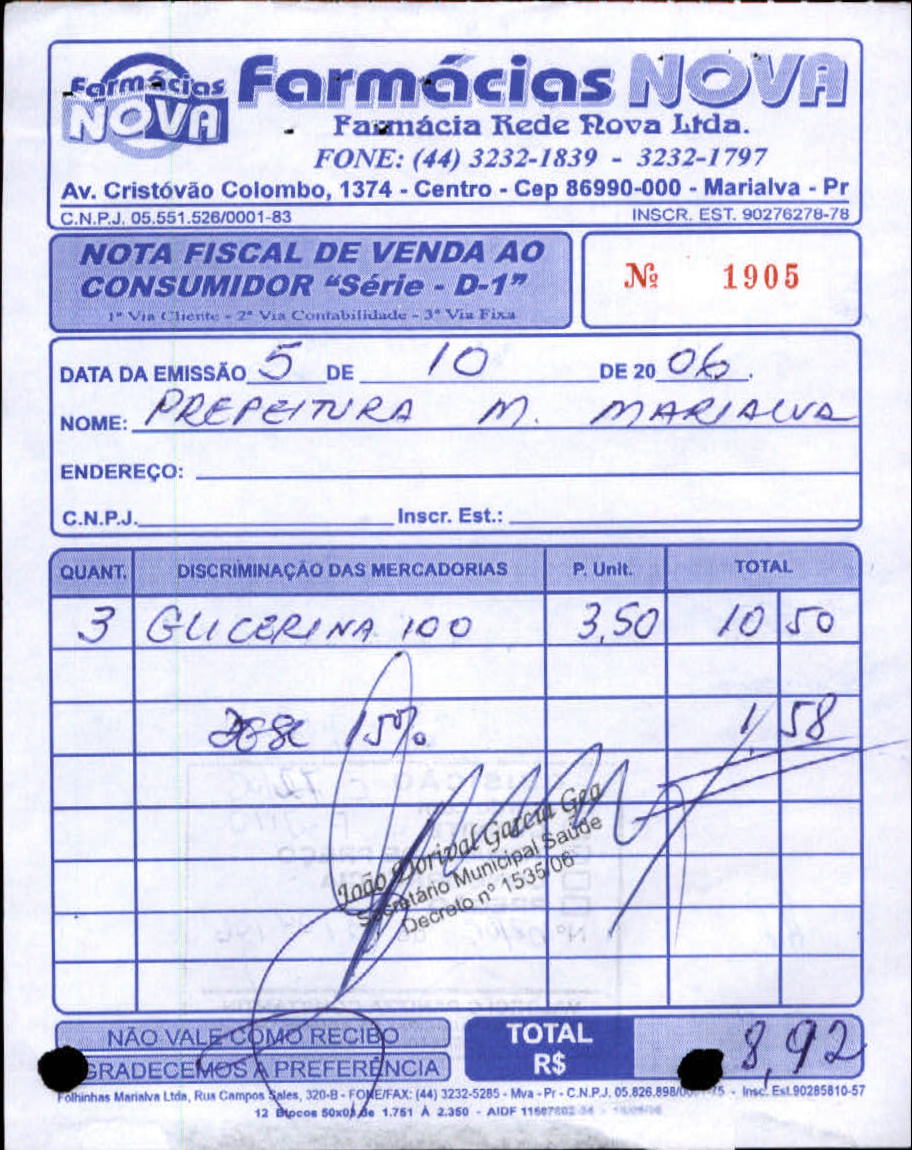 Farmácias NOVA
Farmácias NOVA
Farmácia Rede Nova Ltda.
FONE: (44) 3232-1839 - 3232-1797
Av. Cristóvão Colombo, 1374 - Centro - Cep 86990-000 - Marialva - Pr
C.N.P.J. 05.551.526/0001-83 INSCR. EST. 90276278-78
NOTA FISCAL DE VENDA AO
CONSUMIDOR "Série - D-1"
1ª Via Cliente - 2ª Via Contabilidade - 3ª Via Fixa
Nº 1905
DATA DA EMISSÃO 5 DE 10 DE 20 06.
NOME: PREFEITURA M. MARIALVA
ENDEREÇO:
C.N.P.J. Inscr. Est.:
QUANT. DISCRIMINAÇÃO DAS MERCADORIAS P. Unit. TOTAL
3 GLICERINA 100 3,50 10 50
DESC 15% 1,58
João Dorival Garcia Gea
Secretário Municipal Saúde
Decreto nº 1535/06
NÃO VALE COMO RECIBO
GRADECEMOS A PREFERÊNCIA
TOTAL
R$ 8,92
Folhinhas Marialva Ltda, Rua Campos Sales, 320-B - FONE/FAX: (44) 3232-5285 - Mva - Pr - C.N.P.J. 05.826.898/ - Insc. Est.90285810-57
12 Blocos 50x03 de 1.751 À 2.350 - AIDF